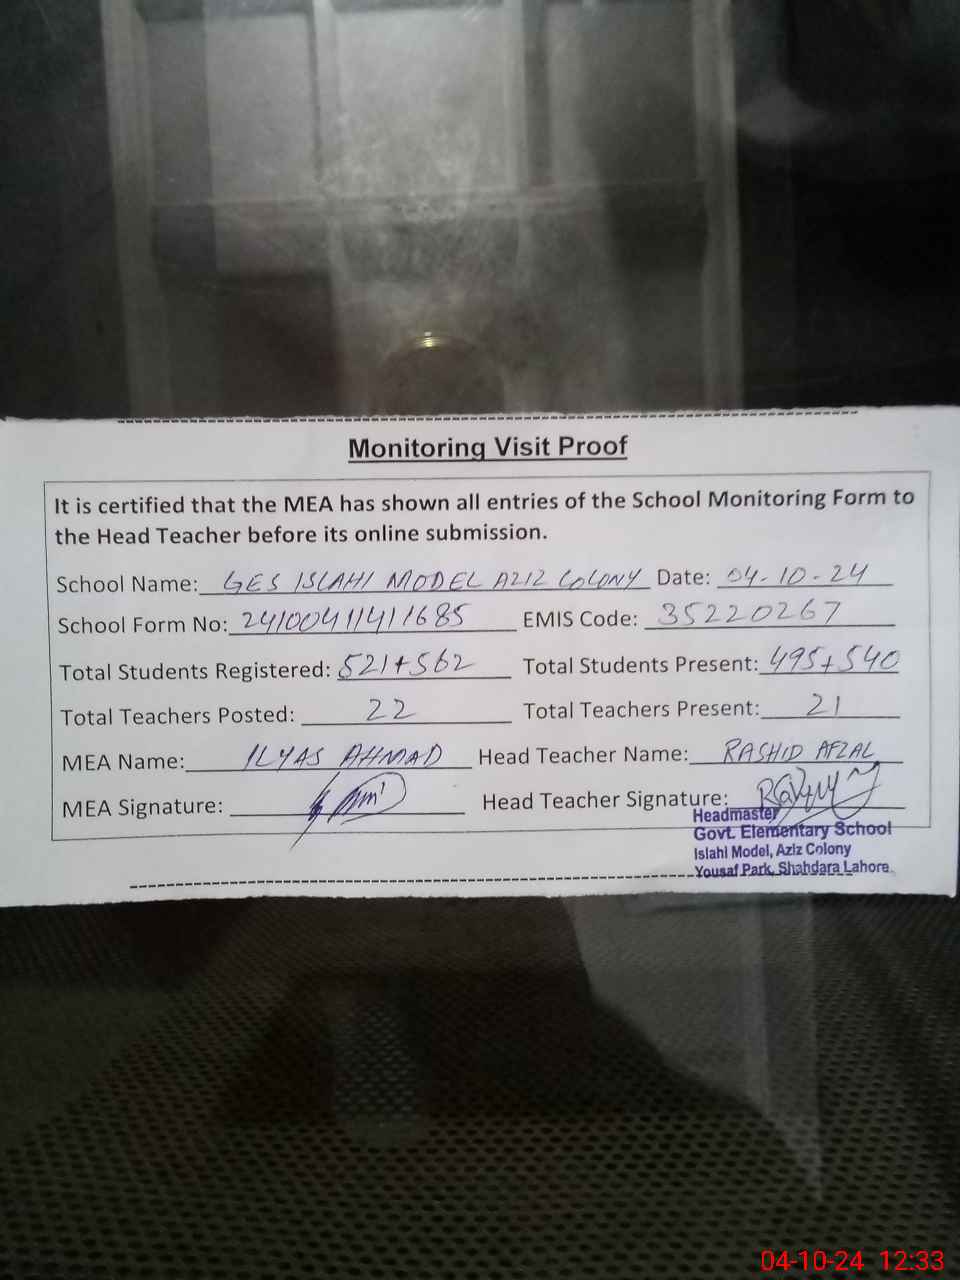 Monitoring Visit Proof
It is certified that the MEA has shown all entries of the School Monitoring Form to
the Head Teacher before its online submission.
School Name: GES ISLAHI MODEL AZIZ COLONY Date: 04-10-24
School Form No: 24100411411685 EMIS Code: 35220267
Total Students Registered: 521+562 Total Students Present: 495+540
Total Teachers Posted: 22 Total Teachers Present: 21
MEA Name: ILYAS AHMAD Head Teacher Name: RASHID AFZAL
MEA Signature: Head Teacher Signature:
Headmaster
Govt. Elementary School
Islahi Model, Aziz Colony
Yousaf Park, Shahdara Lahore.
04-10-24 12:33